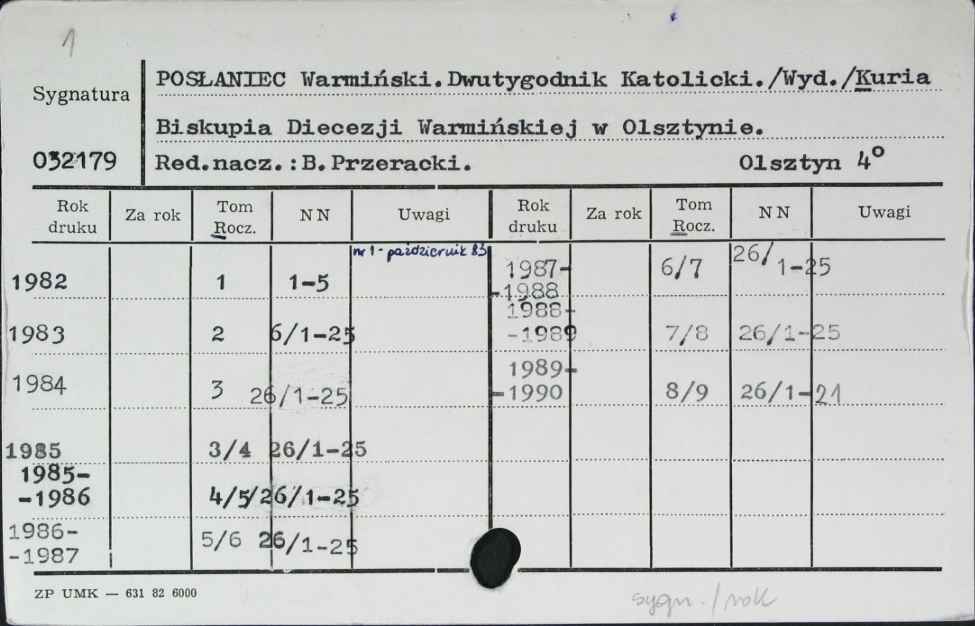 1
Sygnatura
POSŁANIEC Warmiński.Dwutygodnik Katolicki./Wyd./Kuria
Biskupia Diecezji Warmińskiej w Olsztynie.
032179
Red.nacz.:B.Przeracki. Olsztyn 4°
Rok druku Za rok Tom Rocz. NN Uwagi Rok druku Za rok Tom Rocz. NN Uwagi
nr 1 - październik 83
1982 1 1-5 1987-
-1988 6/7 26/1-25
1983 2 6/1-25 1988-
-1989 7/8 26/1-25
1984 3 26/1-25 1989-
-1990 8/9 26/1-21
1985 3/4 26/1-25
1985-
-1986 4/5/26/1-25
1986-
-1987 5/6 26/1-25
ZP UMK — 631 82 6000
sygn./rok